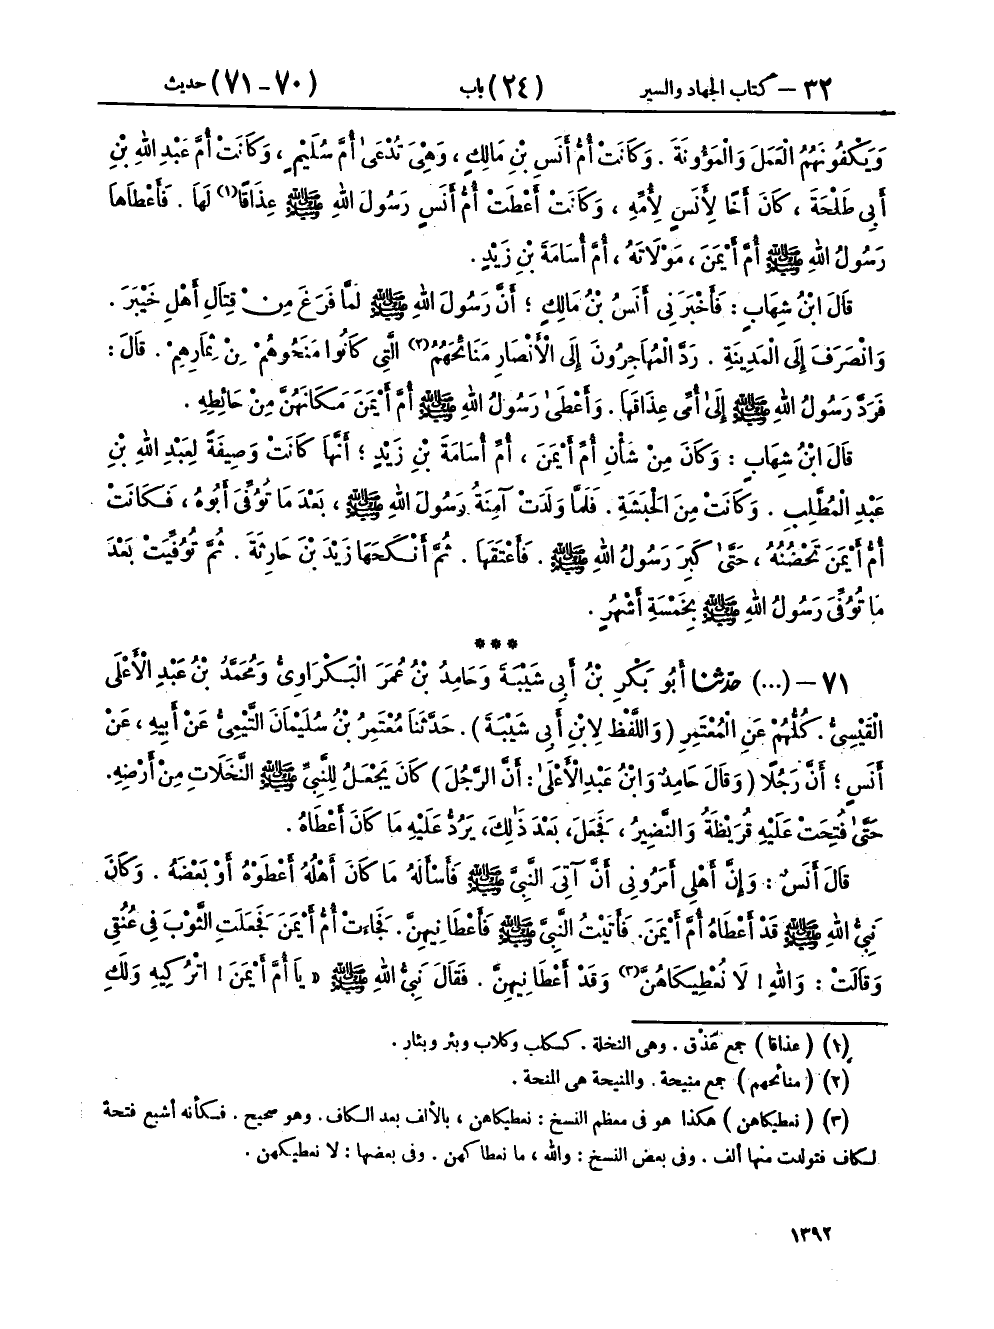 ٣٢ – كتاب الجهاد والسير (٢٤) باب (٧٠ – ٧١) حديث
وَيَكْفُونَهُمُ الْعَمَلَ وَالْمَؤُونَةَ . وَكَانَتْ أُمُّ أَنَسِ بْنِ مَالِكٍ ، وَهْيَ تُدْعَىٰ أُمَّ سُلَيْمٍ ، وَكَانَتْ أُمَّ عَبْدِ اللهِ بْنِ
أَبِي طَلْحَةَ ، كَانَ أَخًا لِأَنَسٍ لِأُمِّهِ ، وَكَانَتْ أَعْطَتْ أُمُّ أَنَسٍ رَسُولَ اللهِ ﷺ عِذَاقًا(١) لَهَا . فَأَعْطَاهَا
رَسُولُ اللهِ ﷺ أُمَّ أَيْمَنَ ، مَوْلَاتَهُ ، أُمَّ أُسَامَةَ بْنِ زَيْدٍ .
قَالَ ابْنُ شِهَابٍ : فَأَخْبَرَنِي أَنَسُ بْنُ مَالِكٍ ؛ أَنَّ رَسُولَ اللهِ ﷺ لَمَّا فَرَغَ مِنْ قِتَالِ أَهْلِ خَيْبَرَ .
وَانْصَرَفَ إِلَى الْمَدِينَةِ . رَدَّ الْمُهَاجِرُونَ إِلَى الْأَنْصَارِ مَنَائِحَهُمُ(٢) الَّتِي كَانُوا مَنَحُوهُمْ مِنْ ثِمَارِهِمْ . قَالَ :
فَرَدَّ رَسُولُ اللهِ ﷺ إِلَىٰ أُمِّي عِذَاقَهَا . وَأَعْطَىٰ رَسُولُ اللهِ ﷺ أُمَّ أَيْمَنَ مَكَانَهُنَّ مِنْ حَائِطِهِ .
قَالَ ابْنُ شِهَابٍ : وَكَانَ مِنْ شَأْنِ أُمِّ أَيْمَنَ ، أُمِّ أُسَامَةَ بْنِ زَيْدٍ ؛ أَنَّهَا كَانَتْ وَصِيفَةً لِعَبْدِ اللهِ بْنِ
عَبْدِ الْمُطَّلِبِ . وَكَانَتْ مِنَ الْحَبَشَةِ . فَلَمَّا وَلَدَتْ آمِنَةُ رَسُولَ اللهِ ﷺ ، بَعْدَ مَا تُوُفِّيَ أَبُوهُ ، فَكَانَتْ
أُمُّ أَيْمَنَ تَحْضُنُهُ ، حَتَّىٰ كَبِرَ رَسُولُ اللهِ ﷺ . فَأَعْتَقَهَا . ثُمَّ أَنْكَحَهَا زَيْدَ بْنَ حَارِثَةَ . ثُمَّ تُوُفِّيَتْ بَعْدَ
مَا تُوُفِّيَ رَسُولُ اللهِ ﷺ بِخَمْسَةِ أَشْهُرٍ .
***
٧١ – (...) حَدَّثَنَا أَبُو بَكْرِ بْنُ أَبِي شَيْبَةَ وَحَامِدُ بْنُ عُمَرَ الْبَكْرَاوِيُّ وَمُحَمَّدُ بْنُ عَبْدِ الْأَعْلَى
الْقَيْسِيُّ . كُلُّهُمْ عَنِ الْمُعْتَمِرِ ( وَاللَّفْظُ لِابْنِ أَبِي شَيْبَةَ ) . حَدَّثَنَا مُعْتَمِرُ بْنُ سُلَيْمَانَ التَّيْمِيُّ عَنْ أَبِيهِ ، عَنْ
أَنَسٍ ؛ أَنَّ رَجُلًا ( وَقَالَ حَامِدٌ وَابْنُ عَبْدِ الْأَعْلَىٰ : أَنَّ الرَّجُلَ ) كَانَ يَجْعَلُ لِلنَّبِيِّ ﷺ النَّخَلَاتِ مِنْ أَرْضِهِ .
حَتَّىٰ فُتِحَتْ عَلَيْهِ قُرَيْظَةُ وَالنَّضِيرُ ، فَجَعَلَ ، بَعْدَ ذَٰلِكَ ، يَرُدُّ عَلَيْهِ مَا كَانَ أَعْطَاهُ .
قَالَ أَنَسٌ : وَإِنَّ أَهْلِي أَمَرُونِي أَنْ آتِيَ النَّبِيَّ ﷺ فَأَسْأَلَهُ مَا كَانَ أَهْلُهُ أَعْطَوْهُ أَوْ بَعْضَهُ . وَكَانَ
نَبِيُّ اللهِ ﷺ قَدْ أَعْطَاهُ أُمَّ أَيْمَنَ . فَأَتَيْتُ النَّبِيَّ ﷺ فَأَعْطَانِيهِنَّ . فَجَاءَتْ أُمُّ أَيْمَنَ فَجَعَلَتِ الثَّوْبَ فِي عُنُقِي
وَقَالَتْ : وَاللهِ ! لَا نُعْطِيكَاهُنَّ(٣) وَقَدْ أَعْطَانِيهِنَّ . فَقَالَ نَبِيُّ اللهِ ﷺ « يَا أُمَّ أَيْمَنَ ! اتْرُكِيهِ وَلَكِ
(١) ( عذاقا ) جمع عَذْق . وهى النخلة . ككلب وكلاب وبئر وبئار .
(٢) ( منائحهم ) جمع منيحة . والمنيحة هى المنحة .
(٣) ( نعطيكاهن ) هكذا هو فى معظم النسخ : نعطيكاهن ، بالألف بعد الكاف . وهو صحيح . فكأنه أشبع فتحة
الكاف فتولدت منها ألف . وفى بعض النسخ : والله ، ما نعطاكهن . وفى بعضها : لا نعطيكهن .
١٣٩٢